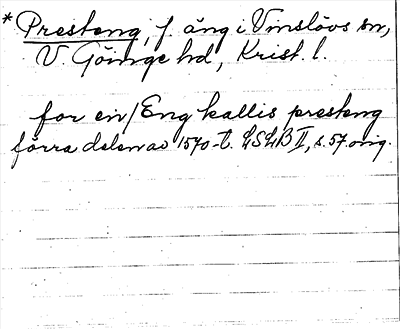 * Presteng, f. äng i Vinslövs sn,
V. Göinge hd, Krist. l.
for en / Eng kallis presteng
förra delen av 1570-t. LSLB II, s. 57 orig.